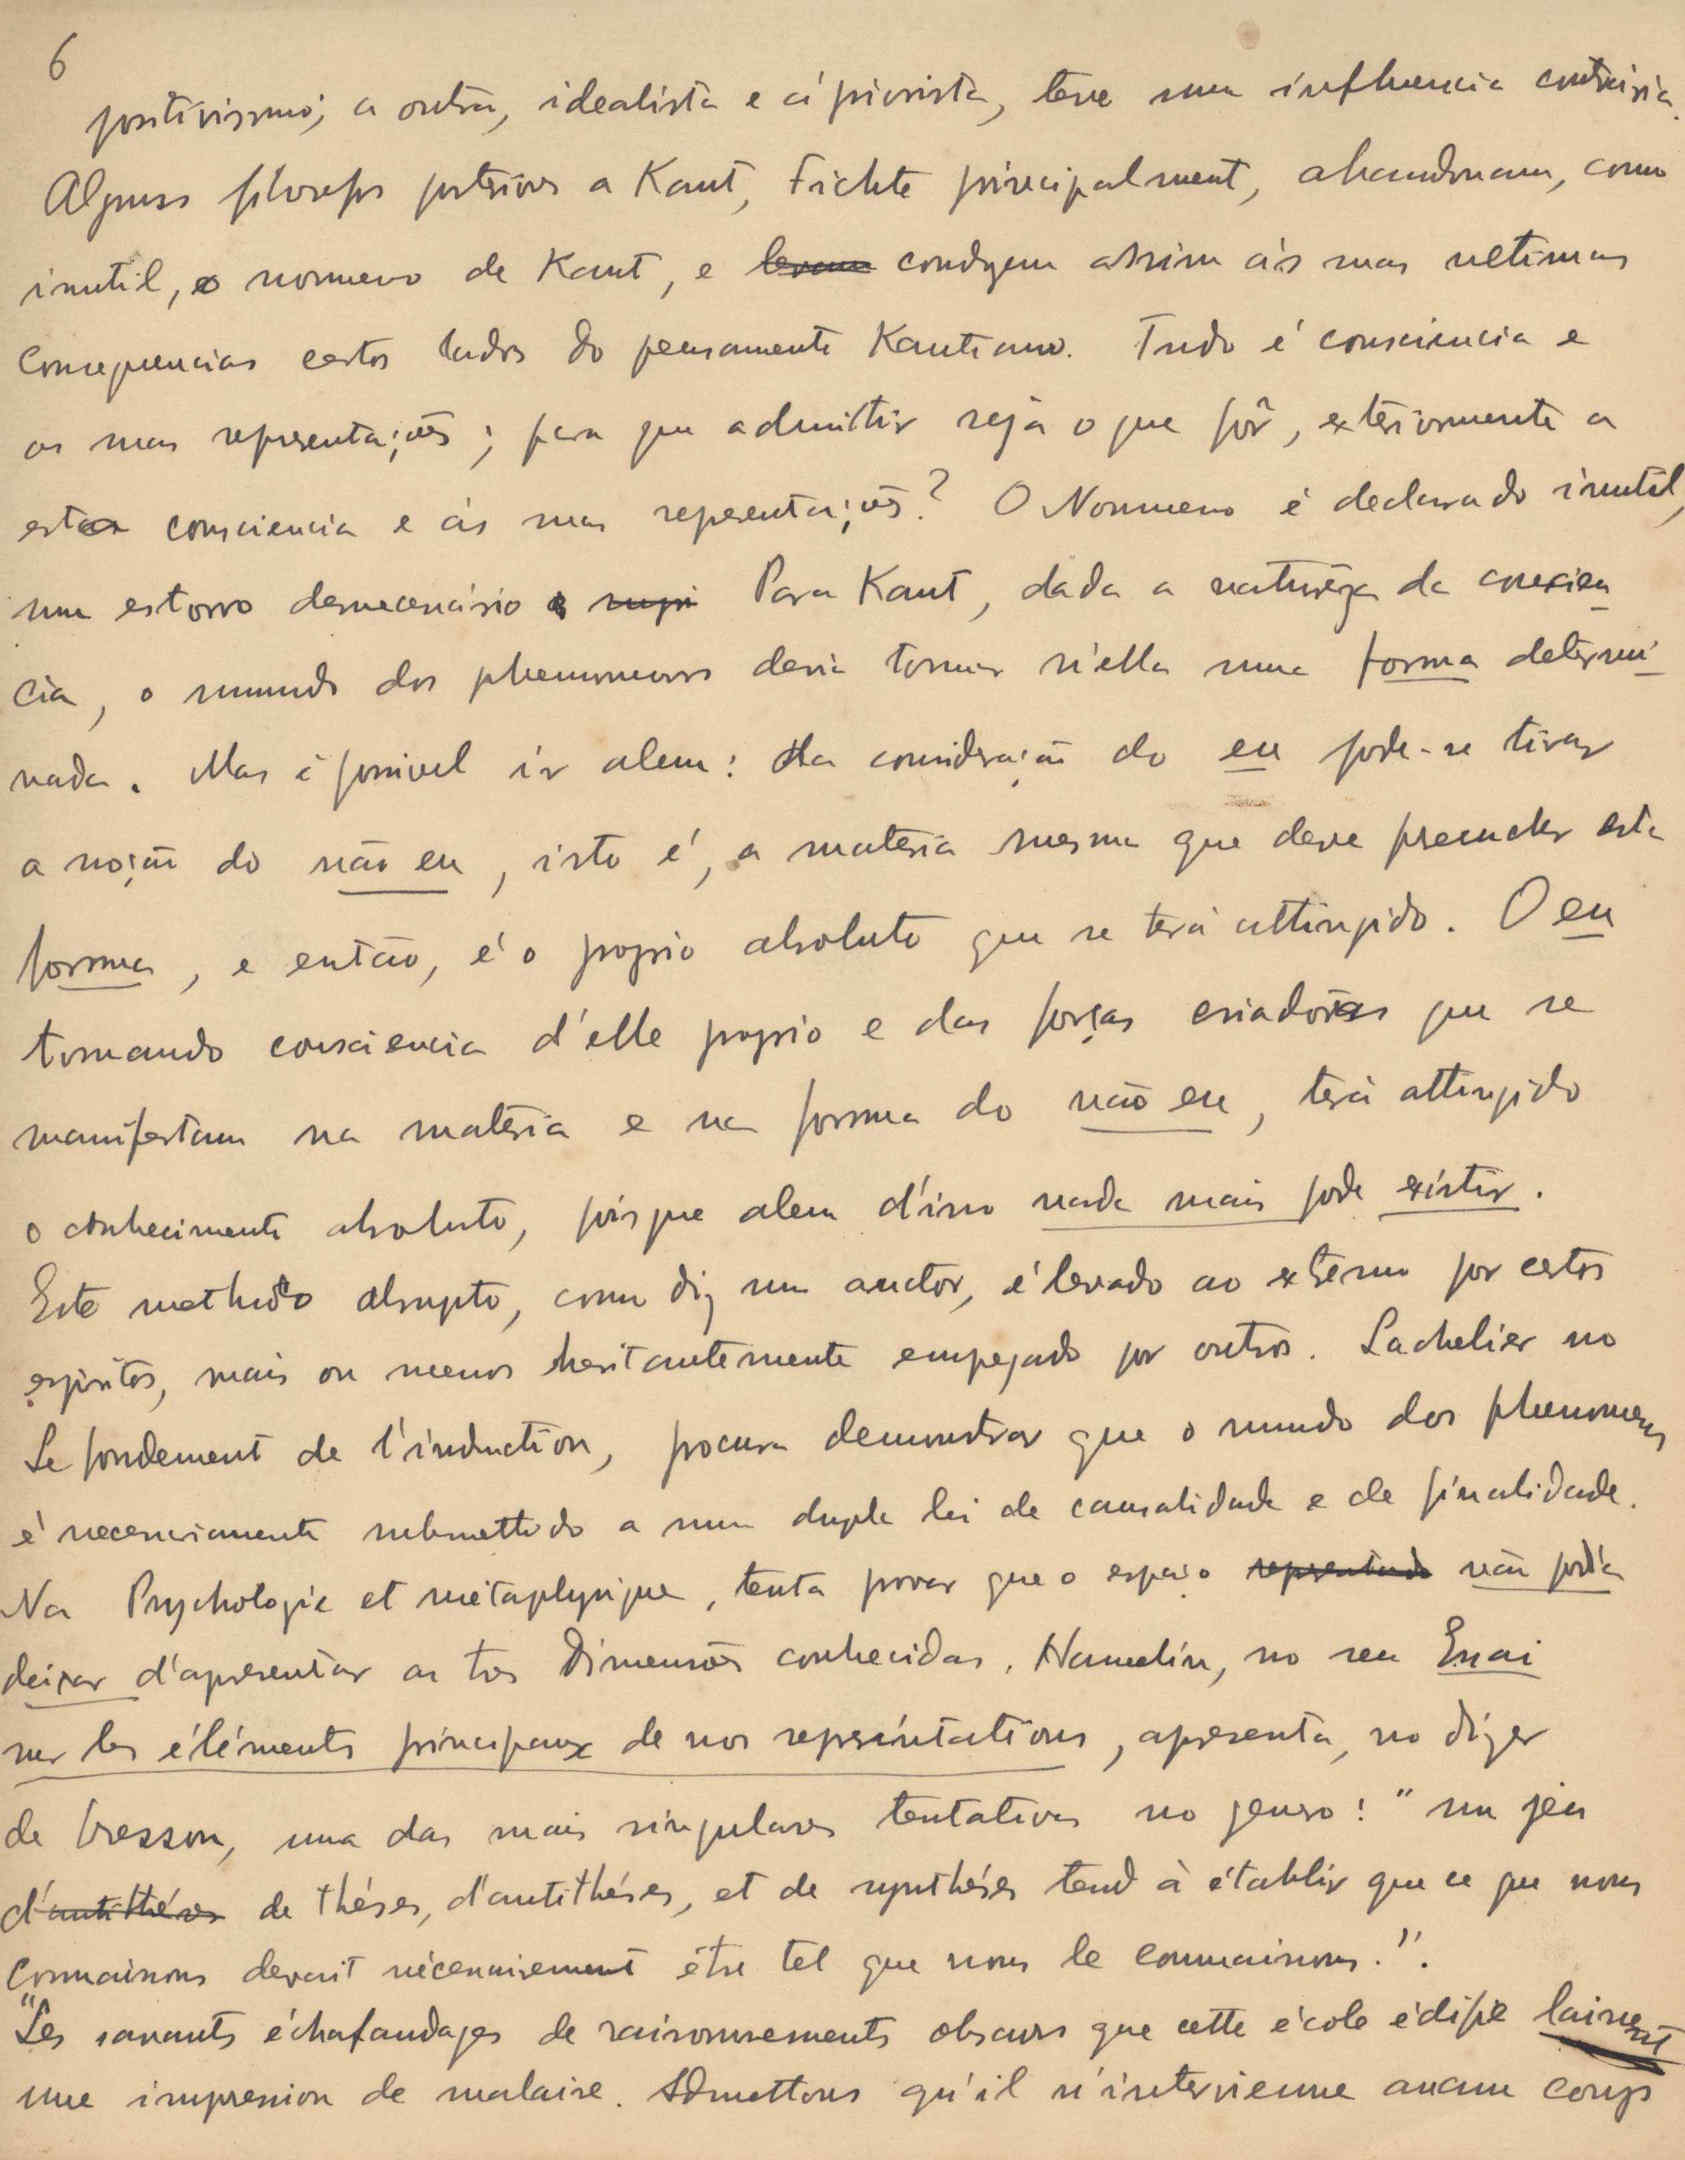 6
positivismo; a outra, idealista e á priorista, teve uma influencia contrária.
Alguns filosofos posteriores a Kant, Fichte principalment, abandonam, como
inutil, o noumeno de Kant, e levam conduzem assim ás suas ultimas
consequencias certos lados do pensamento Kantiano. Tudo é consciencia e
as suas representações; para que admittir seja o que fôr, exteriormente a
esta consciencia e ás suas representações? O Noumeno é declarado inutil,
um estorvo desnecessário e Para Kant, dada a naturêza da conscien
cia, o mundo dos phenomenos devia tomar n'ella uma forma determi-
nada. Mas é possivel ir alem: da consideração do eu pode-se tirar
a noção do não eu, isto é, a materia mesma que deve preencher esta
forma, e então, é o proprio absoluto que se terá attingido. O eu
tomando consciencia d'elle proprio e das forças criadôras que se
manifestam na materia e na forma do não eu, terá attingido
o conhecimento absoluto, pois que alem d'isso nada mais pode existir.
Este methodo abrupto, como diz um auctor, é levado ao extremo por certos
espiritos, mais ou menos hesitantemente empregado por outros. Lachelier no
Le fondement de l'induction, procura demonstrar que o mundo dos phenomenos
é necessariamente submettido a uma dupla lei de causalidade e de finalidade.
Na Psychologie et métaphysique, tenta provar que o espaço representado não podia
deixar d'apresentar as tres dimensões conhecidas. Hamelin, no seu Essai
sur les éléments principaux de nos représintations, apresenta, no dizer
de Cresson, uma das mais singulares tentativas no genero: "un jeu
d'antithéses de théses, d'antithéses, et de synthéses tend à établir que ce que nous
connaissons devait nécessairement être tel que nous le connaissons.".
"Les savants échafaudages de raisonnements obscurs que cette école édifie laissent
une impression de malaise. Admettons qu'il n'intervienne aucun coup